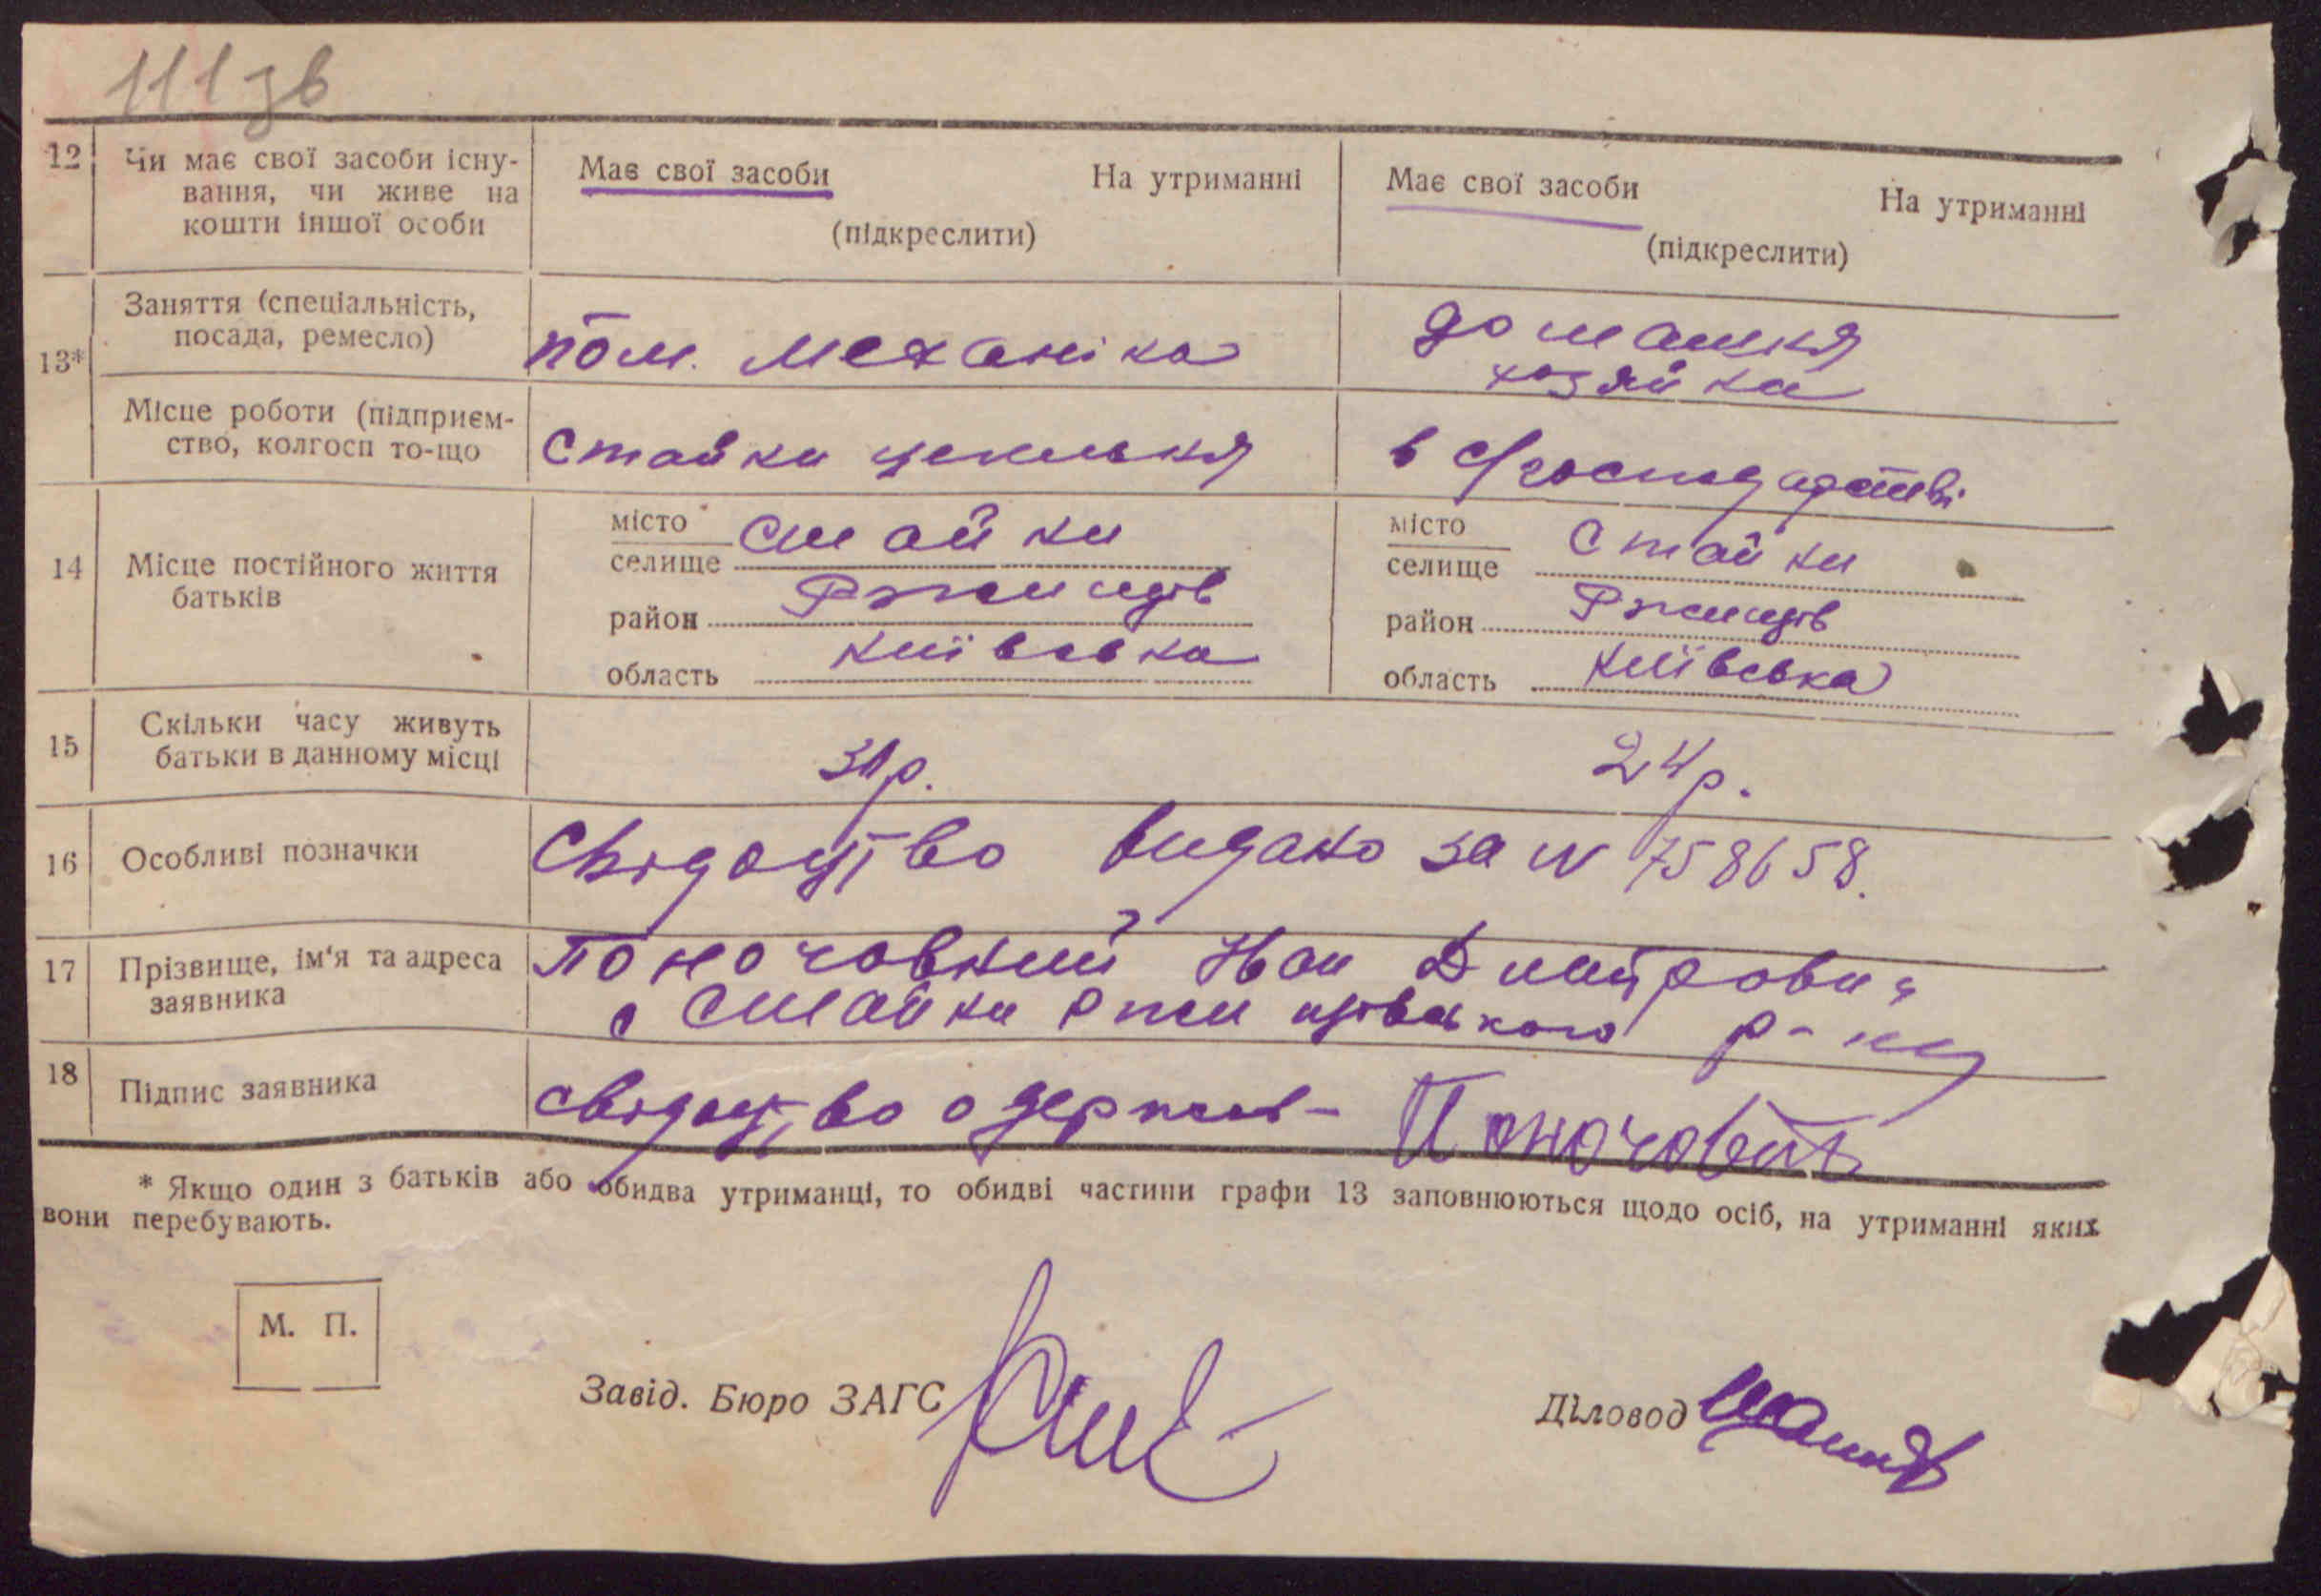 111 зв
12 Чи має свої засоби існу-
вання, чи живе на
кошти іншої особи
Має свої засоби На утриманні
(підкреслити)
Має свої засоби На утриманні
(підкреслити)
13*
Заняття (спеціальність,
посада, ремесло)
пом. механіка
домашня
хозяйка
Місце роботи (підприєм-
ство, колгосп то-що
Стайки
в с/господарстві
14 Місце постійного життя
батьків
місто
селище Стайки
район Ржищів
область Київська
місто
селище Стайки
район Ржищів
область Київська
15 Скільки часу живуть
батьки в данному місці
31 р.
24 р.
16 Особливі позначки
Свідоцтво видано за № 758658.
17 Прізвище, ім'я та адреса
заявника
Поночовний Іван Дмитрович
с Стайки Ржищівського р-ну
18 Підпис заявника
свідоцтво одержав-
* Якщо один з батьків або обидва утриманці, то обидві частини графи 13 заповнюються щодо осіб, на утриманні яких
вони перебувають.
М. П.
Завід. Бюро ЗАГС
Діловод